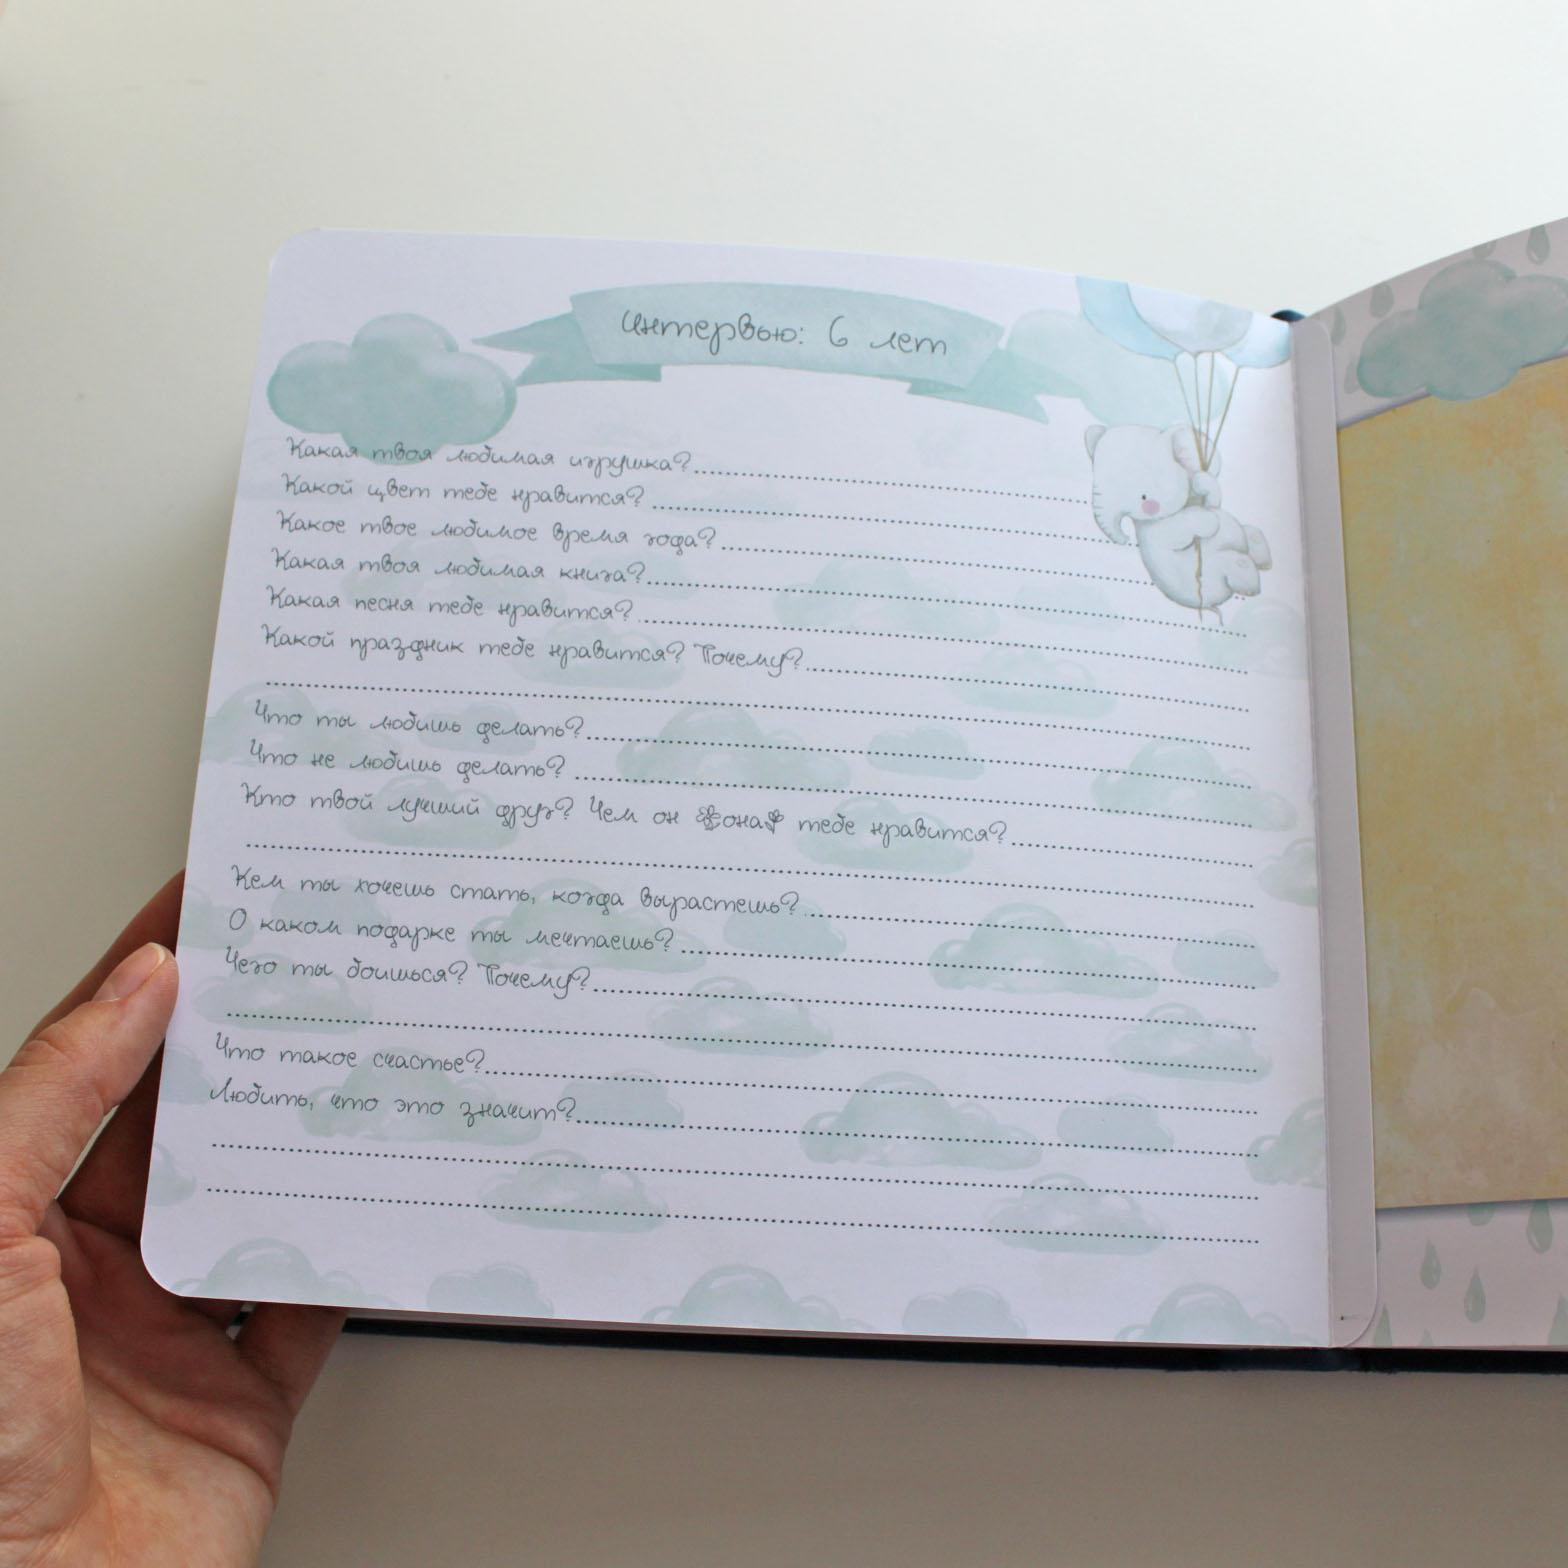 Интервью: 6 лет
Какая твоя любимая игрушка?
Какой цвет тебе нравится?
Какое твое любимое время года?
Какая твоя любимая книга?
Какая песня тебе нравится?
Какой праздник тебе нравится? Почему?
Что ты любишь делать?
Что не любишь делать?
Кто твой лучший друг? Чем он она тебе нравится?
Кем ты хочешь стать, когда вырастешь?
О каком подарке ты мечтаешь?
Чего ты боишься? Почему?
Что такое счастье?
Любить, что это значит?